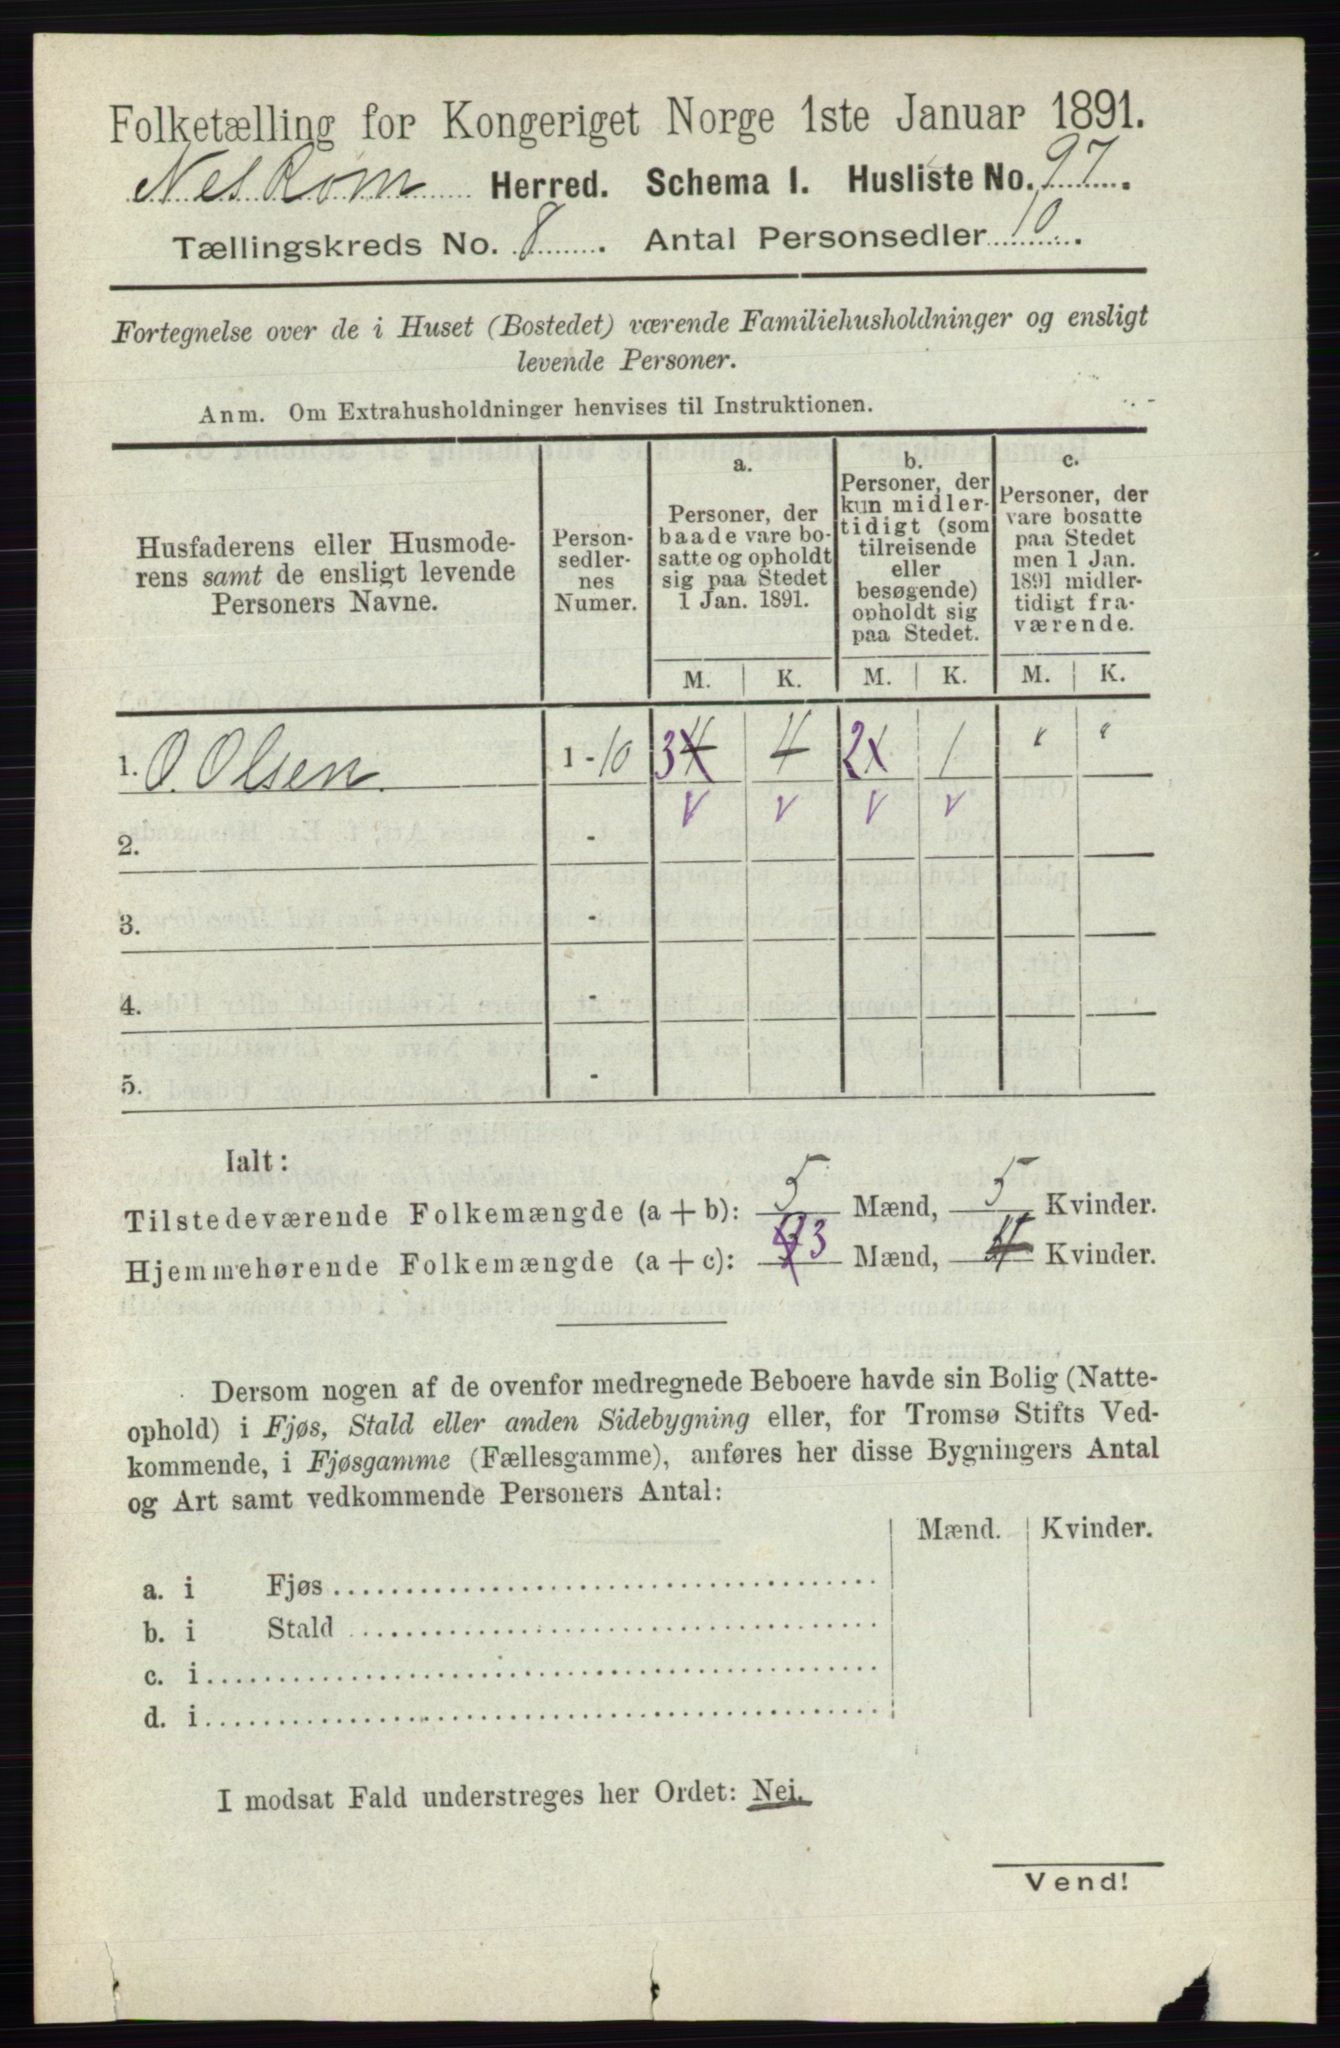 Folketælling for Kongeriget Norge 1ste Januar 1891.
Nes Rom Herred. Schema I. Husliste No. 97.
Tællingskreds No. 8. Antal Personsedler 10.
Fortegnelse over de i Huset (Bostedet) værende Familiehusholdninger og ensligt
levende Personer.
Anm. Om Extrahusholdninger henvises til Instruktionen.
Husfaderens eller Husmode-
rens samt de ensligt levende
Personers Navne.
Person-
sedler-
nes
Numer.
a.
Personer, der
baade vare bo-
satte og opholdt
sig paa Stedet
1 Jan. 1891.
b.
Personer, der
kun midler-
tidigt (som
tilreisende
eller
besøgende)
opholdt sig
paa Stedet.
c.
Personer, der
vare bosatte
paa Stedet
men 1 Jan.
1891 midler-
tidigt fra-
værende.
M. K. M. K. M. K.
1. O. Olsen. 1 - 10 3 4 4 2 1 1 " "
2. -
3. -
4. -
5. -
Ialt:
Tilstedeværende Folkemængde (a + b): 5 Mænd, 5 Kvinder.
Hjemmehørende Folkemængde (a + c): 3 Mænd, 4 Kvinder.
Dersom nogen af de ovenfor medregnede Beboere havde sin Bolig (Natte-
ophold) i Fjøs, Stald eller anden Sidebygning eller, for Tromsø Stifts Ved-
kommende, i Fjøsgamme (Fællesgamme), anføres her disse Bygningers Antal
og Art samt vedkommende Personers Antal:
Mænd. Kvinder.
a. i Fjøs
b. i Stald
c. i
d. i
I modsat Fald understreges her Ordet: Nei.
Vend!